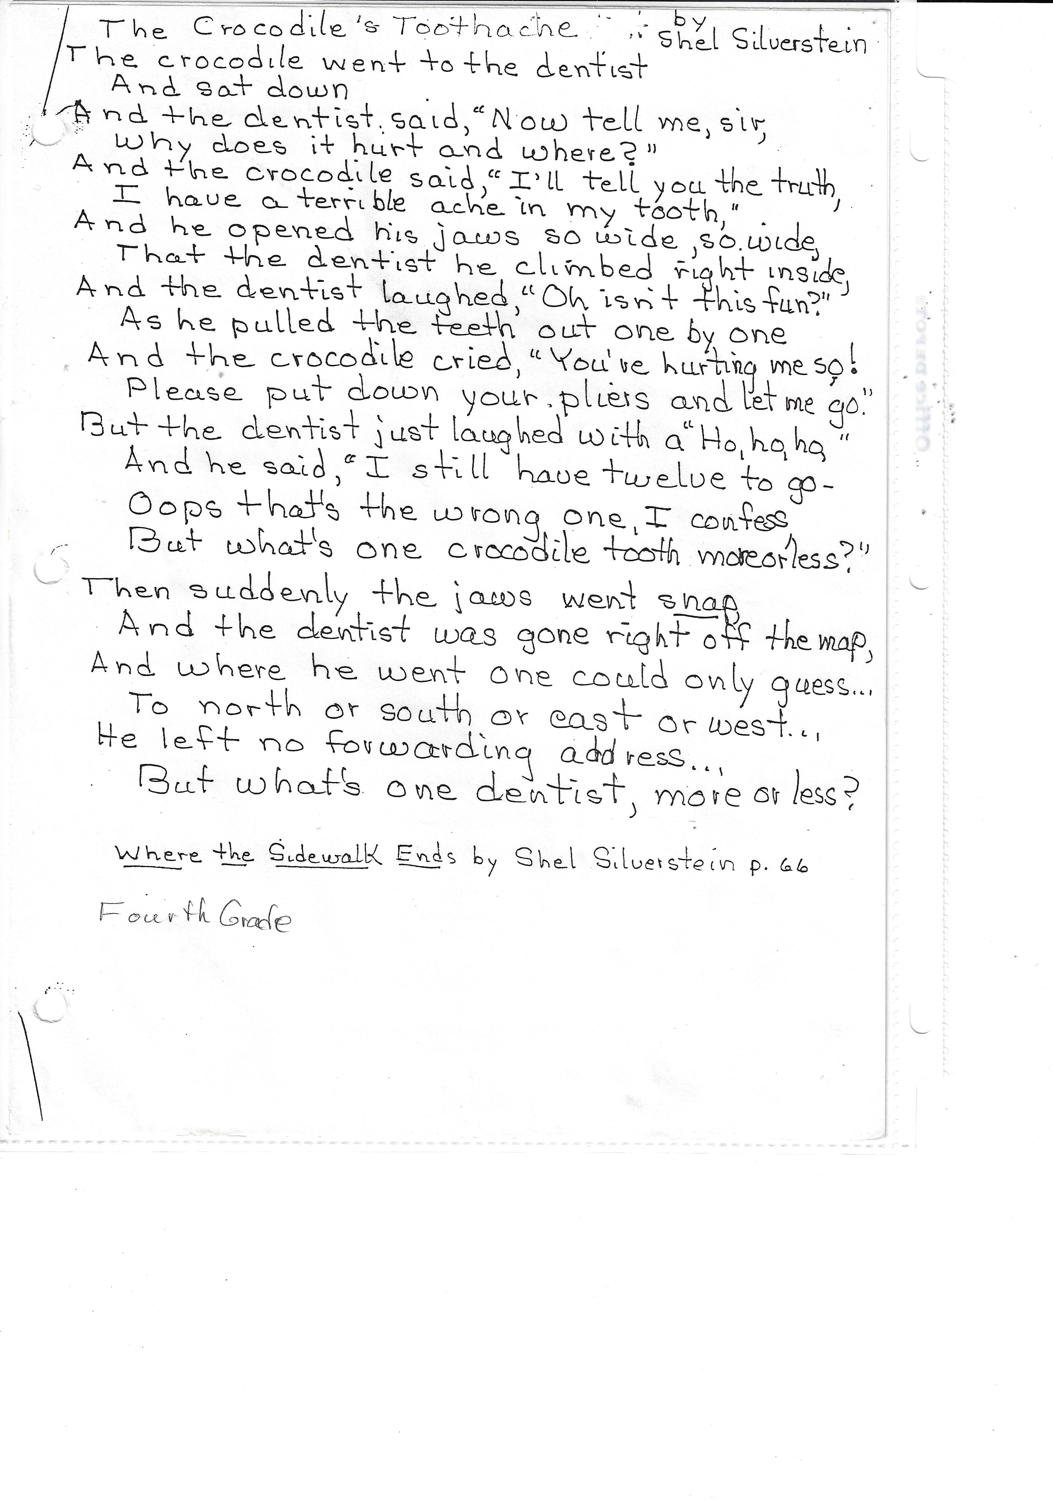 The Crocodile's Toothache by
Shel Silverstein
The crocodile went to the dentist
And sat down
And the dentist said, "Now tell me, sir,
Why does it hurt and where?"
And the crocodile said, "I'll tell you the truth,
I have a terrible ache in my tooth,"
And he opened his jaws so wide, so wide,
That the dentist he climbed right inside,
And the dentist laughed, "Oh isn't this fun?"
As he pulled the teeth out one by one
And the crocodile cried, "You've hurting me so!
Please put down your pliers and let me go."
But the dentist just laughed with a "Ho, ho, ho,"
And he said, "I still have twelve to go-
Oops that's the wrong one, I confess,
But what's one crocodile tooth more or less?"
Then suddenly the jaws went snap,
And the dentist was gone right off the map,
And where he went one could only guess...
To north or south or east or west...,
He left no forwarding address...,
But what's one dentist, more or less?
Where the Sidewalk Ends by Shel Silverstein p. 66
Fourth Grade